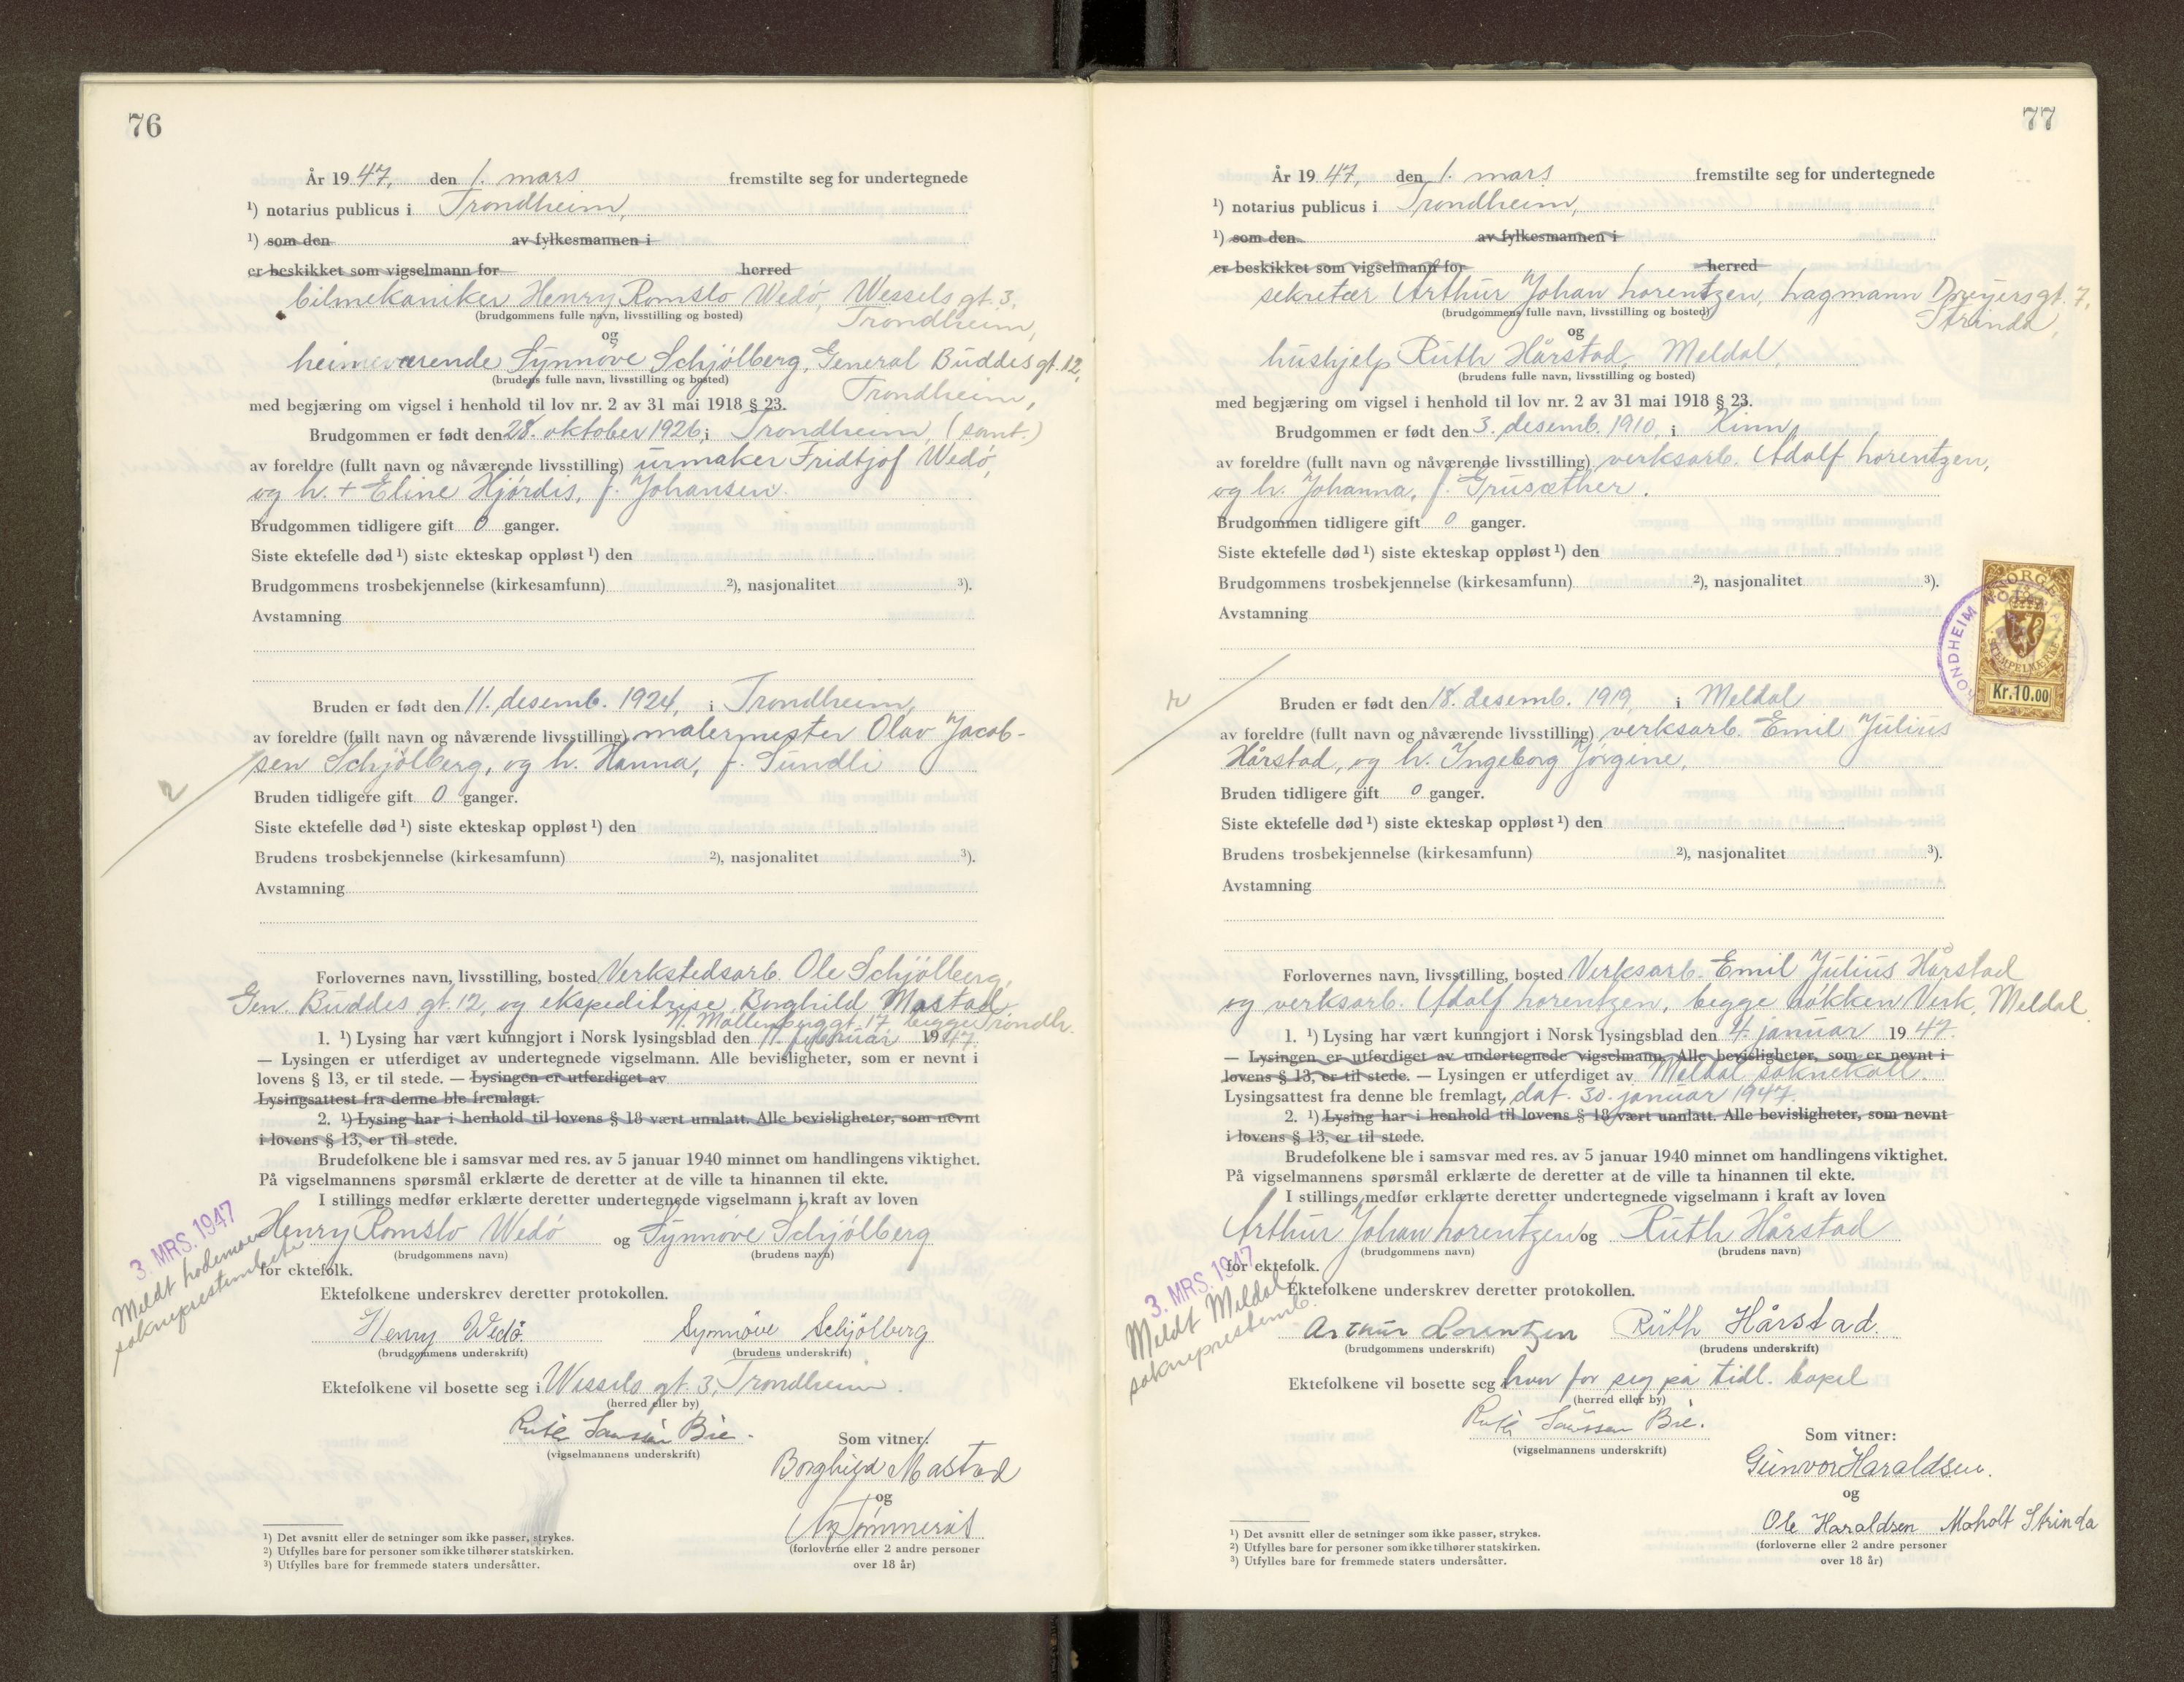 76
År 1947, den 1. mars fremstilte seg for undertegnede
¹) notarius publicus i Trondheim,
¹) som den av fylkesmannen i
er beskikket som vigselmann for herred
bilmekaniker Henry Romslo Wedö, Wessels gt. 3,
(brudgommens fulle navn, livsstilling og bosted) Trondheim,
og
heimeværende Synnöve Schjölberg, General Buddes gt. 12,
(brudens fulle navn, livsstilling og bosted) Trondheim,
med begjæring om vigsel i henhold til lov nr. 2 av 31 mai 1918 § 23.
Brudgommen er født den 28. oktober 1926, i Trondheim, (samt.)
av foreldre (fullt navn og nåværende livsstilling) urmaker Fridtjof Wedö,
og h. + Eline Hjördis, f. Johansen.
Brudgommen tidligere gift 0 ganger.
Siste ektefelle død ¹) siste ekteskap oppløst ¹) den
Brudgommens trosbekjennelse (kirkesamfunn) ²), nasjonalitet ³).
Avstamning
Bruden er født den 11. desemb. 1924, i Trondheim,
av foreldre (fullt navn og nåværende livsstilling) malermester Olav Jacob-
sen Schjölberg, og h. Hanna, f. Sundli
2
Bruden tidligere gift 0 ganger.
Siste ektefelle død ¹) siste ekteskap oppløst ¹) den
Brudens trosbekjennelse (kirkesamfunn) ²), nasjonalitet ³).
Avstamning
Forlovernes navn, livsstilling, bosted Verkstedsarb. Ole Schjölberg,
Gen. Buddes gt. 12, og ekspeditrise Borghild Mastad
N. Möllenberggt. 17 begge Trondh.
1. ¹) Lysing har vært kunngjort i Norsk lysingsblad den 11. februar 1947.
— Lysingen er utferdiget av undertegnede vigselmann. Alle bevisligheter, som er nevnt i
lovens § 13, er til stede. — Lysingen er utferdiget av
Lysingsattest fra denne ble fremlagt.
2. ¹) Lysing har i henhold til lovens § 18 vært unnlatt. Alle bevisligheter, som nevnt
i lovens § 13, er til stede.
Brudefolkene ble i samsvar med res. av 5 januar 1940 minnet om handlingens viktighet.
På vigselmannens spørsmål erklærte de deretter at de ville ta hinannen til ekte.
I stillings medfør erklærte deretter undertegnede vigselmann i kraft av loven
Henry Romslo Wedö og Synnöve Schjölberg
(brudgommens navn) (brudens navn)
for ektefolk.
3. MRS. 1947
Meldt
sokneprestembete
Ektefolkene underskrev deretter protokollen.
Henry Wedö. Synnöve Schjölberg
(brudgommens underskrift) (brudens underskrift)
Ektefolkene vil bosette seg i Wessels gt. 3, Trondheim.
(herred eller by)
Bie.
(vigselmannens underskrift)
Som vitner:
Borghild Mastad
og
(forloverne eller 2 andre personer
over 18 år)
¹) Det avsnitt eller de setninger som ikke passer, strykes.
²) Utfylles bare for personer som ikke tilhører statskirken.
³) Utfylles bare for fremmede staters undersåtter.
77
År 1947, den 1. mars fremstilte seg for undertegnede
¹) notarius publicus i Trondheim,
¹) som den av fylkesmannen i
er beskikket som vigselmann for herred
sekretær Arthur Johan Lorentzen, Lagmann Dreyersgt. 7,
(brudgommens fulle navn, livsstilling og bosted) Strinda,
og
hushjelp Ruth Hårstad, Meldal,
(brudens fulle navn, livsstilling og bosted)
med begjæring om vigsel i henhold til lov nr. 2 av 31 mai 1918 § 23.
Brudgommen er født den 3. desemb. 1910, i Kinn,
av foreldre (fullt navn og nåværende livsstilling) verksarb. Adolf Lorentzen,
og h. Johanna, f. Grusæther.
Brudgommen tidligere gift 0 ganger.
Siste ektefelle død ¹) siste ekteskap oppløst ¹) den
Brudgommens trosbekjennelse (kirkesamfunn) ²), nasjonalitet ³).
Avstamning
NORGE
STEMPELMERKE
Kr.10.00
TRONDHEIM
2
Bruden er født den 18. desemb. 1919, i Meldal
av foreldre (fullt navn og nåværende livsstilling) verksarb. Emil Julius
Hårstad, og h. Ingeborg Jörgine,
Bruden tidligere gift 0 ganger.
Siste ektefelle død ¹) siste ekteskap oppløst ¹) den
Brudens trosbekjennelse (kirkesamfunn) ²), nasjonalitet ³).
Avstamning
Forlovernes navn, livsstilling, bosted Verksarb. Emil Julius Hårstad
og verksarb. Adolf Lorentzen, begge Lökken Verk, Meldal
1. ¹) Lysing har vært kunngjort i Norsk lysingsblad den 4. januar 1947.
— Lysingen er utferdiget av undertegnede vigselmann. Alle bevisligheter, som er nevnt i
lovens § 13, er til stede. — Lysingen er utferdiget av Meldal soknekall.
Lysingsattest fra denne ble fremlagt, dat. 30. januar 1947.
2. ¹) Lysing har i henhold til lovens § 18 vært unnlatt. Alle bevisligheter, som nevnt
i lovens § 13, er til stede.
Brudefolkene ble i samsvar med res. av 5 januar 1940 minnet om handlingens viktighet.
På vigselmannens spørsmål erklærte de deretter at de ville ta hinannen til ekte.
I stillings medfør erklærte deretter undertegnede vigselmann i kraft av loven
Arthur Johan Lorentzen og Ruth Hårstad
(brudgommens navn) (brudens navn)
for ektefolk.
3. MRS. 1947
Meldt Meldal
sokneprestemb.
Ektefolkene underskrev deretter protokollen.
Arthur Lorentzen Ruth Hårstad.
(brudgommens underskrift) (brudens underskrift)
Ektefolkene vil bosette seg hver for seg på tidl. bopel
(herred eller by)
Bie.
(vigselmannens underskrift)
Som vitner:
Gunvor Haraldsen.
og
Ole Haraldsen Moholt Strinda
(forloverne eller 2 andre personer
over 18 år)
¹) Det avsnitt eller de setninger som ikke passer, strykes.
²) Utfylles bare for personer som ikke tilhører statskirken.
³) Utfylles bare for fremmede staters undersåtter.